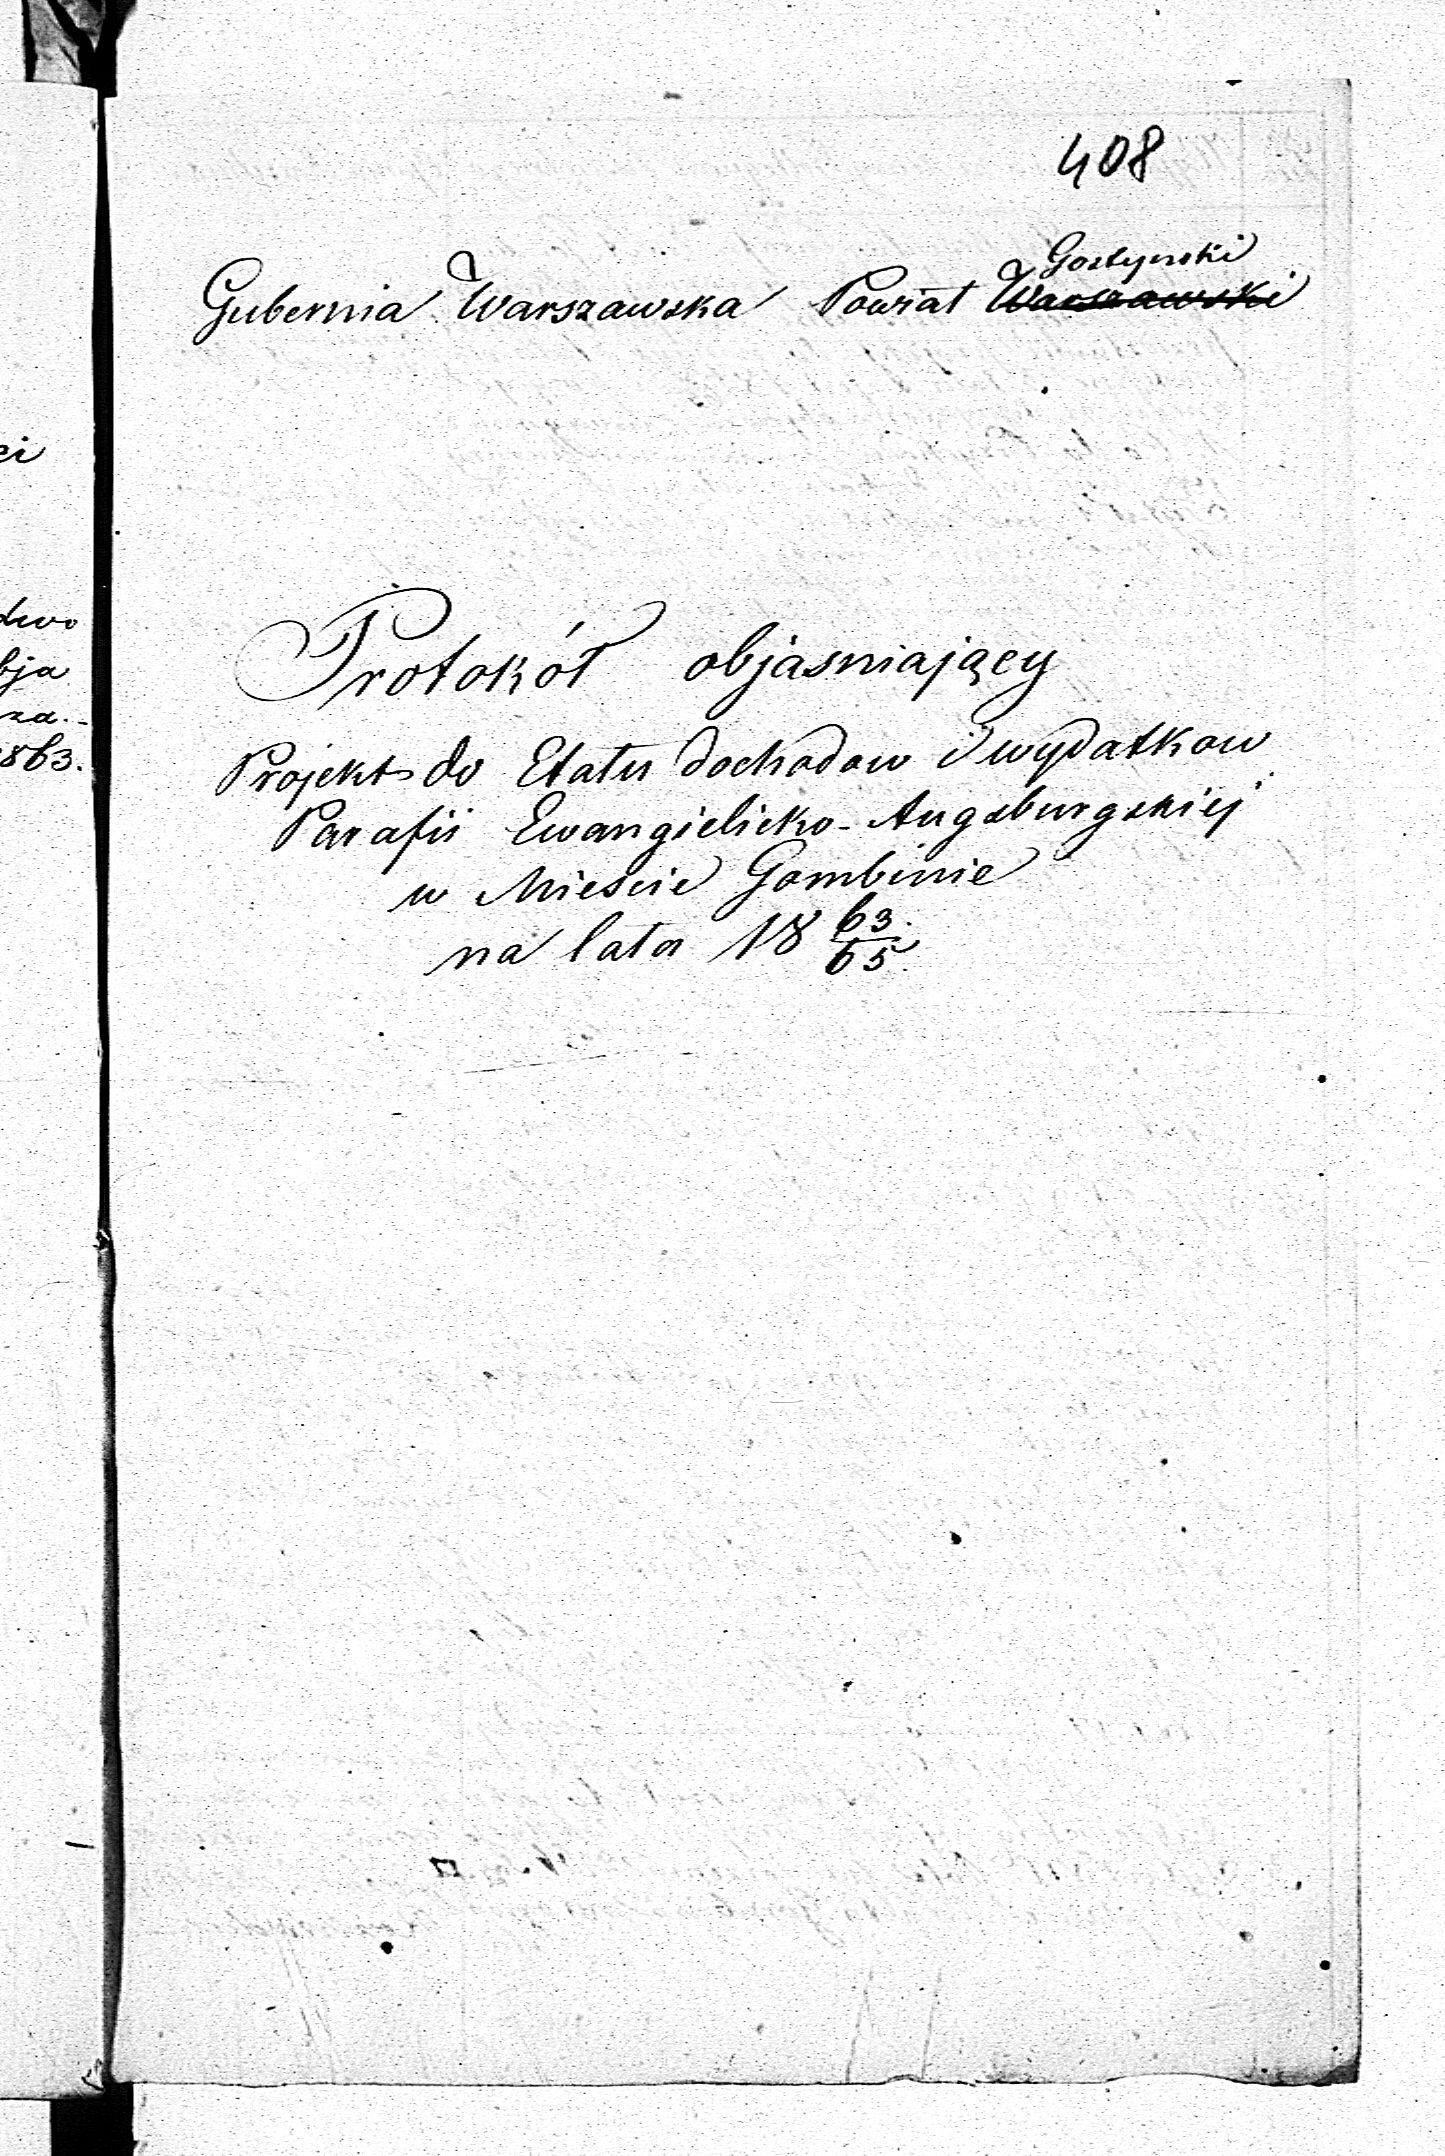 408
Gostynski
Gubernia Warszawska Powiat Warszawski
Protokół objasniający
Projekt do Etatu dochodow i wydatkow
Parafii Ewangielicko-Augsburgskiej
w Miescie Gombinie
na lata 18 63/65.